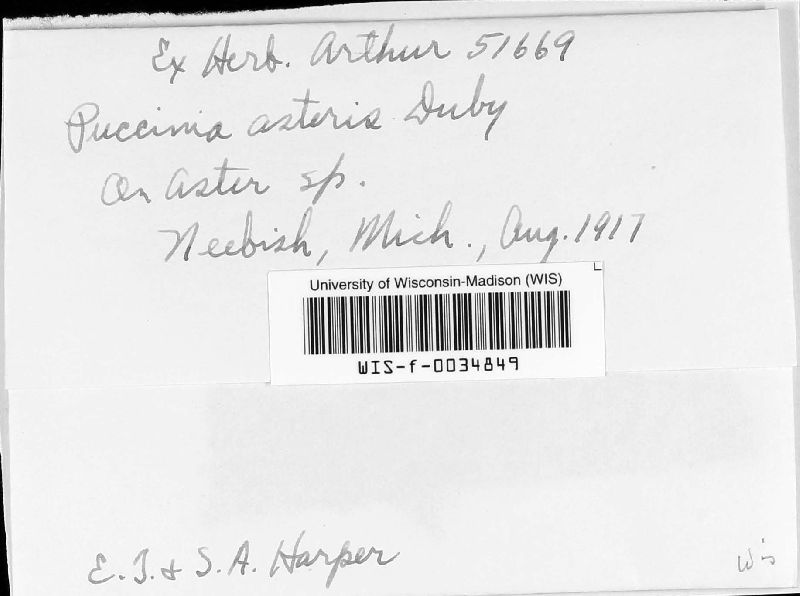 Ex Herb. Arthur 51669
Puccinia asteris Duby
On Aster sp.
Neebish, Mich., Aug. 1917
University of Wisconsin-Madison (WIS)
WIS-f-0034849
E. T. & S. A. Harper
Wis